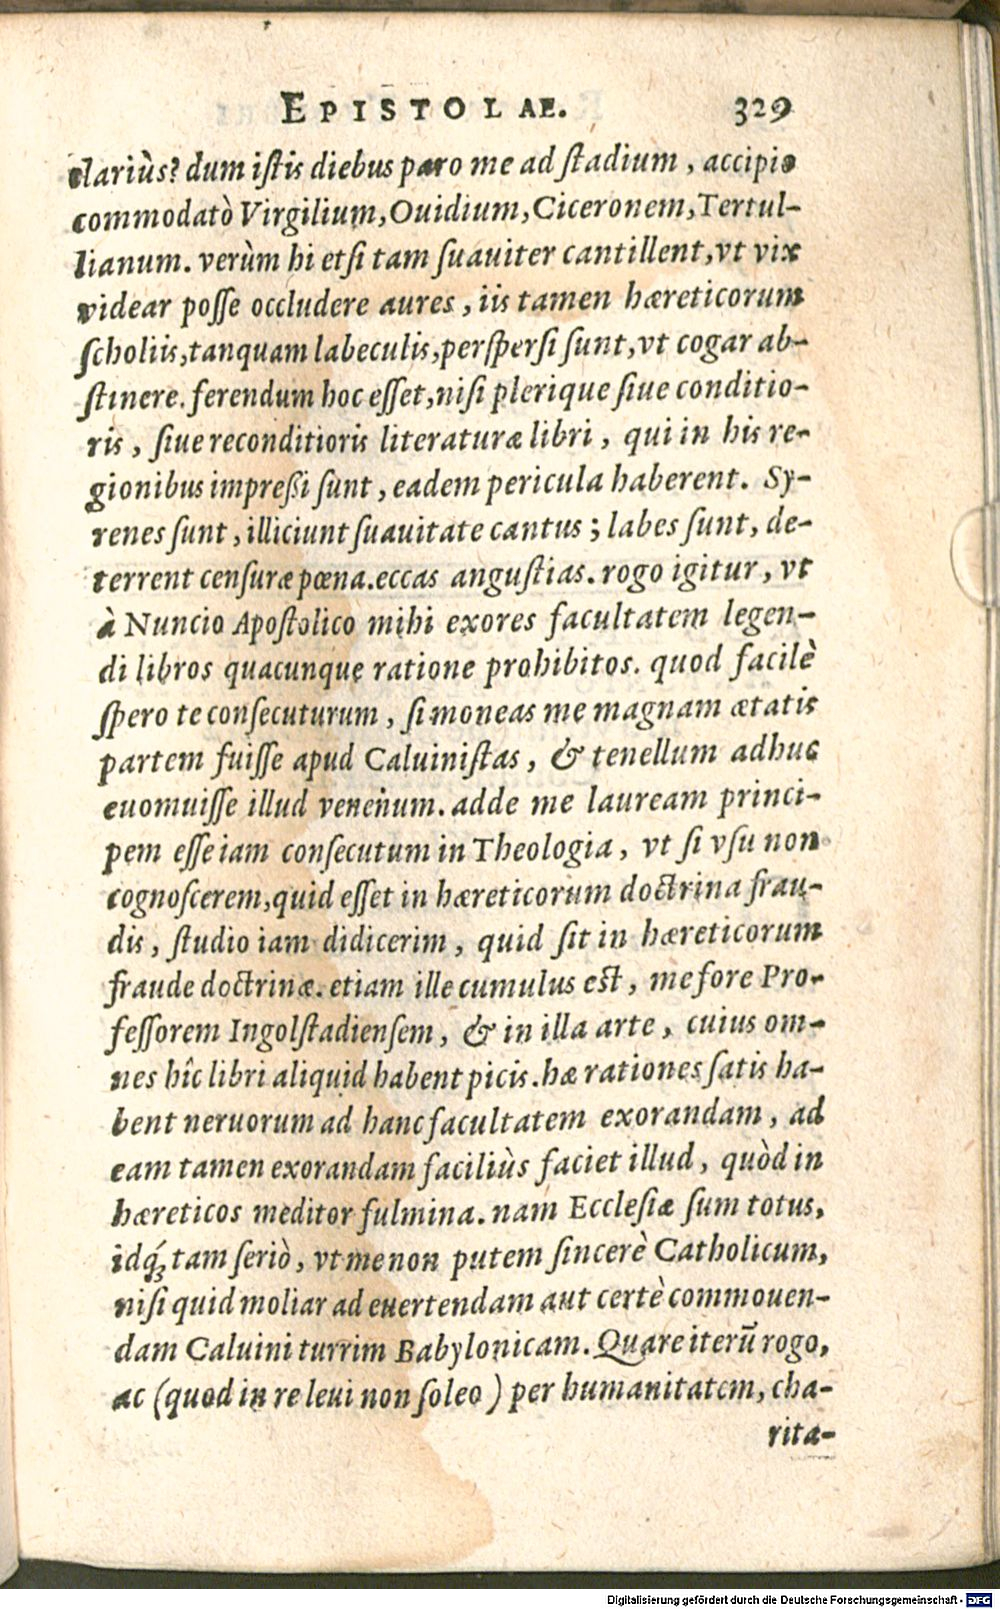 EPISTOLAE. 329
clariùs? dum iſtis diebus paro me ad ſtadium, accipio
commodatò Virgilium, Ouidium, Ciceronem, Tertul-
lianum. verùm hi etſi tam ſuauiter cantillent, vt vix
videar poſſe occludere aures, iis tamen hæreticorum
ſcholiis, tanquam labeculis, perſperſi ſunt, vt cogar ab-
ſtinere. ferendum hoc eſſet, niſi plerique ſiue conditio-
ris, ſiue reconditioris literaturæ libri, qui in his re-
gionibus impreßi ſunt, eadem pericula haberent. Sy-
renes ſunt, illiciunt ſuauitate cantus; labes ſunt, de-
terrent cenſuræ pœna. eccas anguſtias. rogo igitur, vt
à Nuncio Apoſtolico mihi exores facultatem legen-
di libros quacunque ratione prohibitos. quod facilè
ſpero te conſecuturum, ſi moneas me magnam ætatis
partem fuiſſe apud Caluiniſtas, & tenellum adhuc
euomuiſſe illud venenum. adde me lauream princi-
pem eſſe iam conſecutum in Theologia, vt ſi vſu non
cognoſcerem, quid eſſet in hæreticorum doctrina frau-
dis, ſtudio iam didicerim, quid ſit in hæreticorum
fraude doctrinæ. etiam ille cumulus eſt, me fore Pro-
feſſorem Ingolſtadienſem, & in illa arte, cuius om-
nes hîc libri aliquid habent picis. hæ rationes ſatis ha-
bent neruorum ad hanc facultatem exorandam, ad
eam tamen exorandam faciliùs faciet illud, quòd in
hæreticos meditor fulmina. nam Eccleſiæ ſum totus,
idq́; tam ſeriò, vt me non putem ſincerè Catholicum,
niſi quid moliar ad euertendam aut certè commouen-
dam Caluini turrim Babylonicam. Quare iterū rogo,
ac (quod in re leui non ſoleo) per humanitatem, cha-
rita-
Digitalisierung gefördert durch die Deutsche Forschungsgemeinschaft - DFG